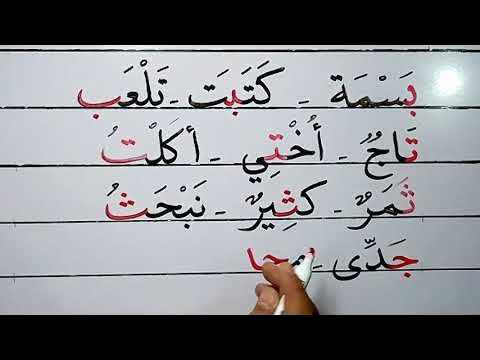 بَسْمَة - كَتَبَت - تَلْعَب
تَاجٌ - أُخْتِي - أكَلْتُ
ثَمَرٌ - كَثِيرٌ - نَبْحَثُ
جَدِّى -